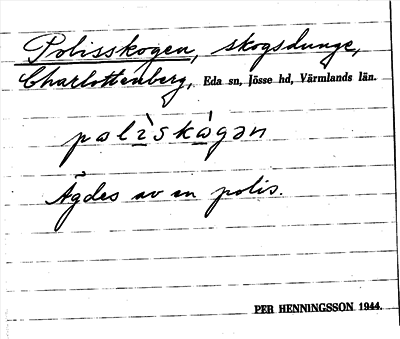 Polisskogen, skogsdunge,
Charlottenberg, Eda sn, Jösse hd, Värmlands län.
pəlìskògən
Ägdes av en polis.
PER HENNINGSSON 1944.